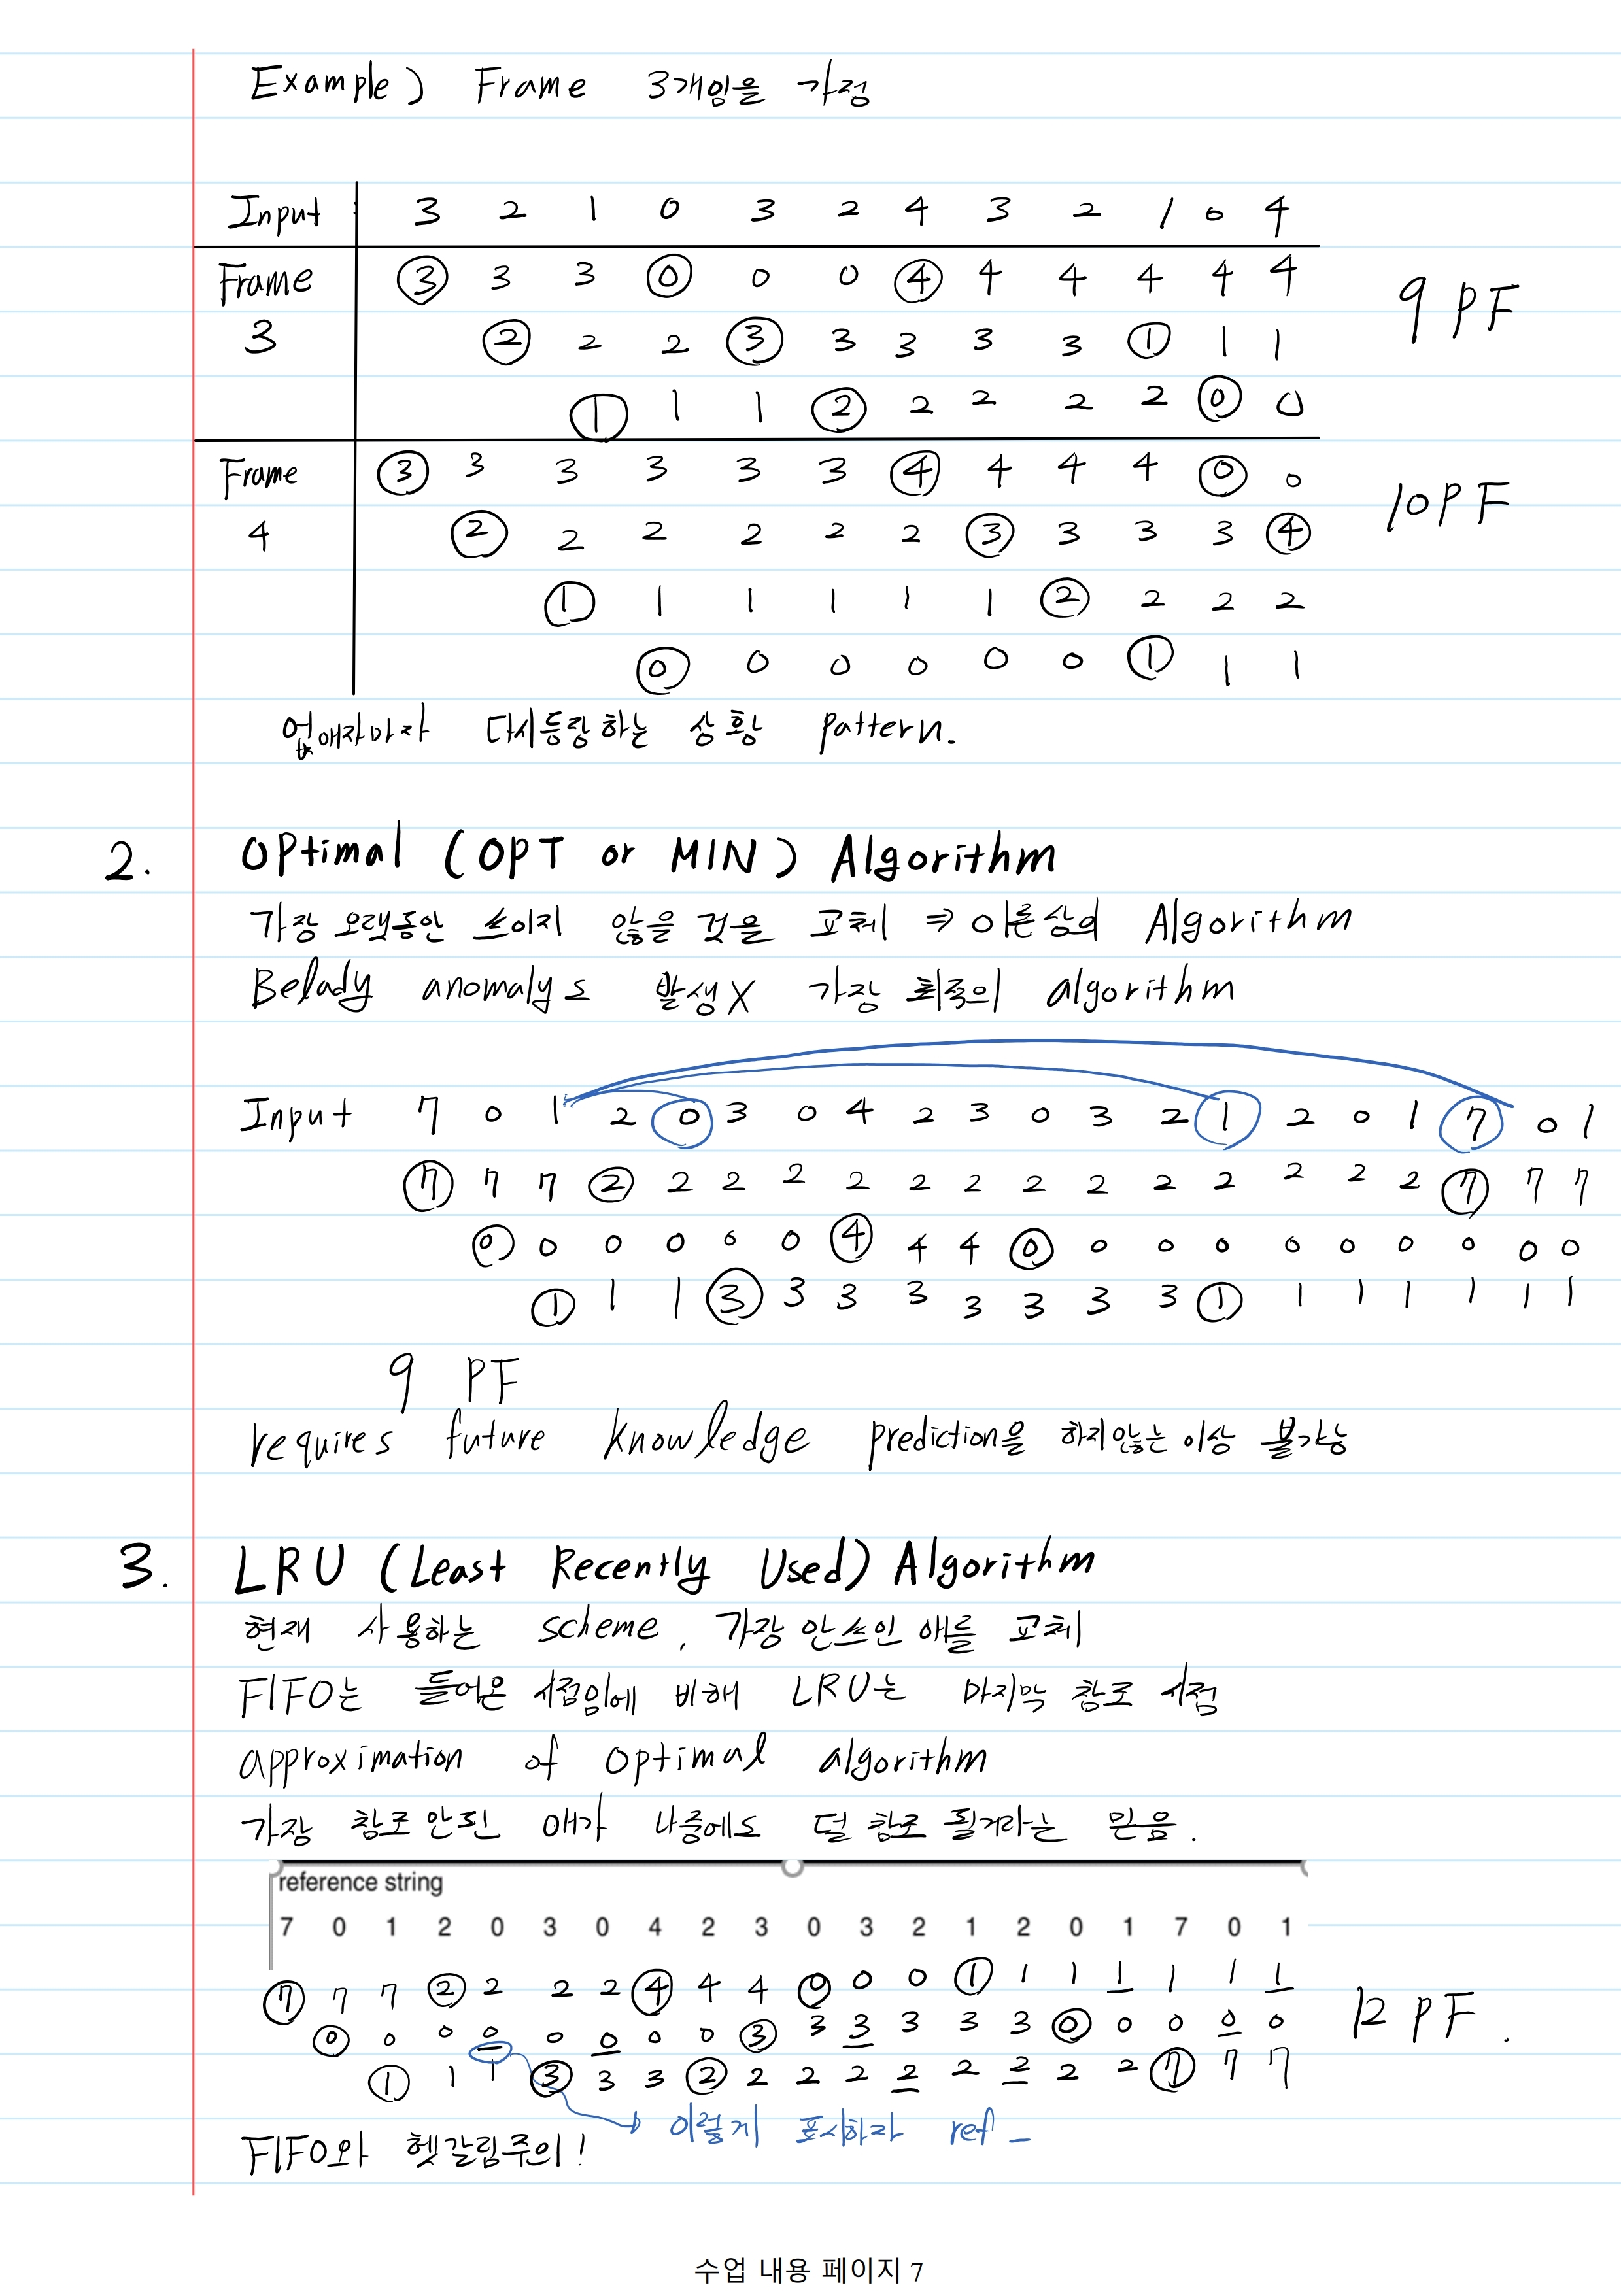 Example) Frame 3개임을 가정
Input : 3 2 1 0 3 2 4 3 2 1 0 4
Frame 3 3 3 0 0 0 4 4 4 4 4 4
3 2 2 2 3 3 3 3 3 1 1 1
1 1 1 2 2 2 2 2 0 0
9 PF
Frame 3 3 3 3 3 3 4 4 4 4 0 0
4 2 2 2 2 2 2 3 3 3 3 4
1 1 1 1 1 1 2 2 2 2
0 0 0 0 0 0 1 1 1
10PF
없애자마자 다시등장하는 상황 pattern.
2. Optimal (OPT or MIN) Algorithm
가장 오랫동안 쓰이지 않을 것을 교체 ⇒ 이론상의 Algorithm
Belady anomaly도 발생X 가장 최적의 algorithm
Input 7 0 1 2 0 3 0 4 2 3 0 3 2 1 2 0 1 7 0 1
7 7 7 2 2 2 2 2 2 2 2 2 2 2 2 2 2 7 7 7
0 0 0 0 0 0 4 4 4 0 0 0 0 0 0 0 0 0 0
1 1 1 3 3 3 3 3 3 3 3 1 1 1 1 1 1 1
9 PF
requires future knowledge prediction을 하지않는 이상 불가능
3. LRU (Least Recently Used) Algorithm
현재 사용하는 scheme, 가장 안쓰인 애를 교체
FIFO는 들어온 시점임에 비해 LRU는 마지막 참조 시점
approximation of optimal algorithm
가장 참조 안된 애가 나중에도 덜 참조 될거라는 믿음.
reference string
7 0 1 2 0 3 0 4 2 3 0 3 2 1 2 0 1 7 0 1
7 7 7 2 2 2 2 4 4 4 0 0 0 1 1 1 1 1 1 1
0 0 0 0 0 0 0 0 3 3 3 3 3 3 0 0 0 0 0
1 1 1 3 3 3 2 2 2 2 2 2 2 2 2 7 7 7
12 PF.
이렇게 표시하자 ref _
FIFO와 헷갈림주의!
수업 내용 페이지 7